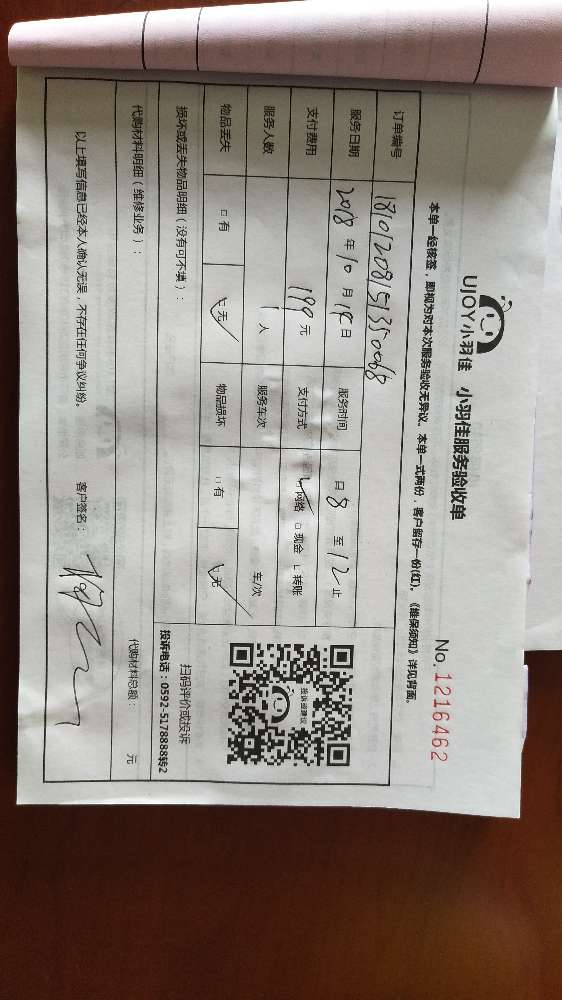 UJOY小羽佳 小羽佳服务验收单
No. 1216462
本单一经核签，即视为对本次服务验收无异议、本单一式两份，客户留存一份(红)。《维保须知》详见背面。
订单编号 18101208151350068
服务日期 2018 年 10 月 日 服务时间 日 8 至 12 止
支付费用 190 元 支付方式 网络 现金 转账
服务人数 1 人 服务车次 车/次
物品丢失 有 无 物品损坏 有 无
投诉或建议
扫码评价或投诉
投诉电话：0592-5178888转2
损坏或丢失物品明细（没有可不填）：
代购材料明细（维修业务）： 代购材料总额： 元
以上填写信息已经本人确认无误，不存在任何争议纠纷。 客户签名：